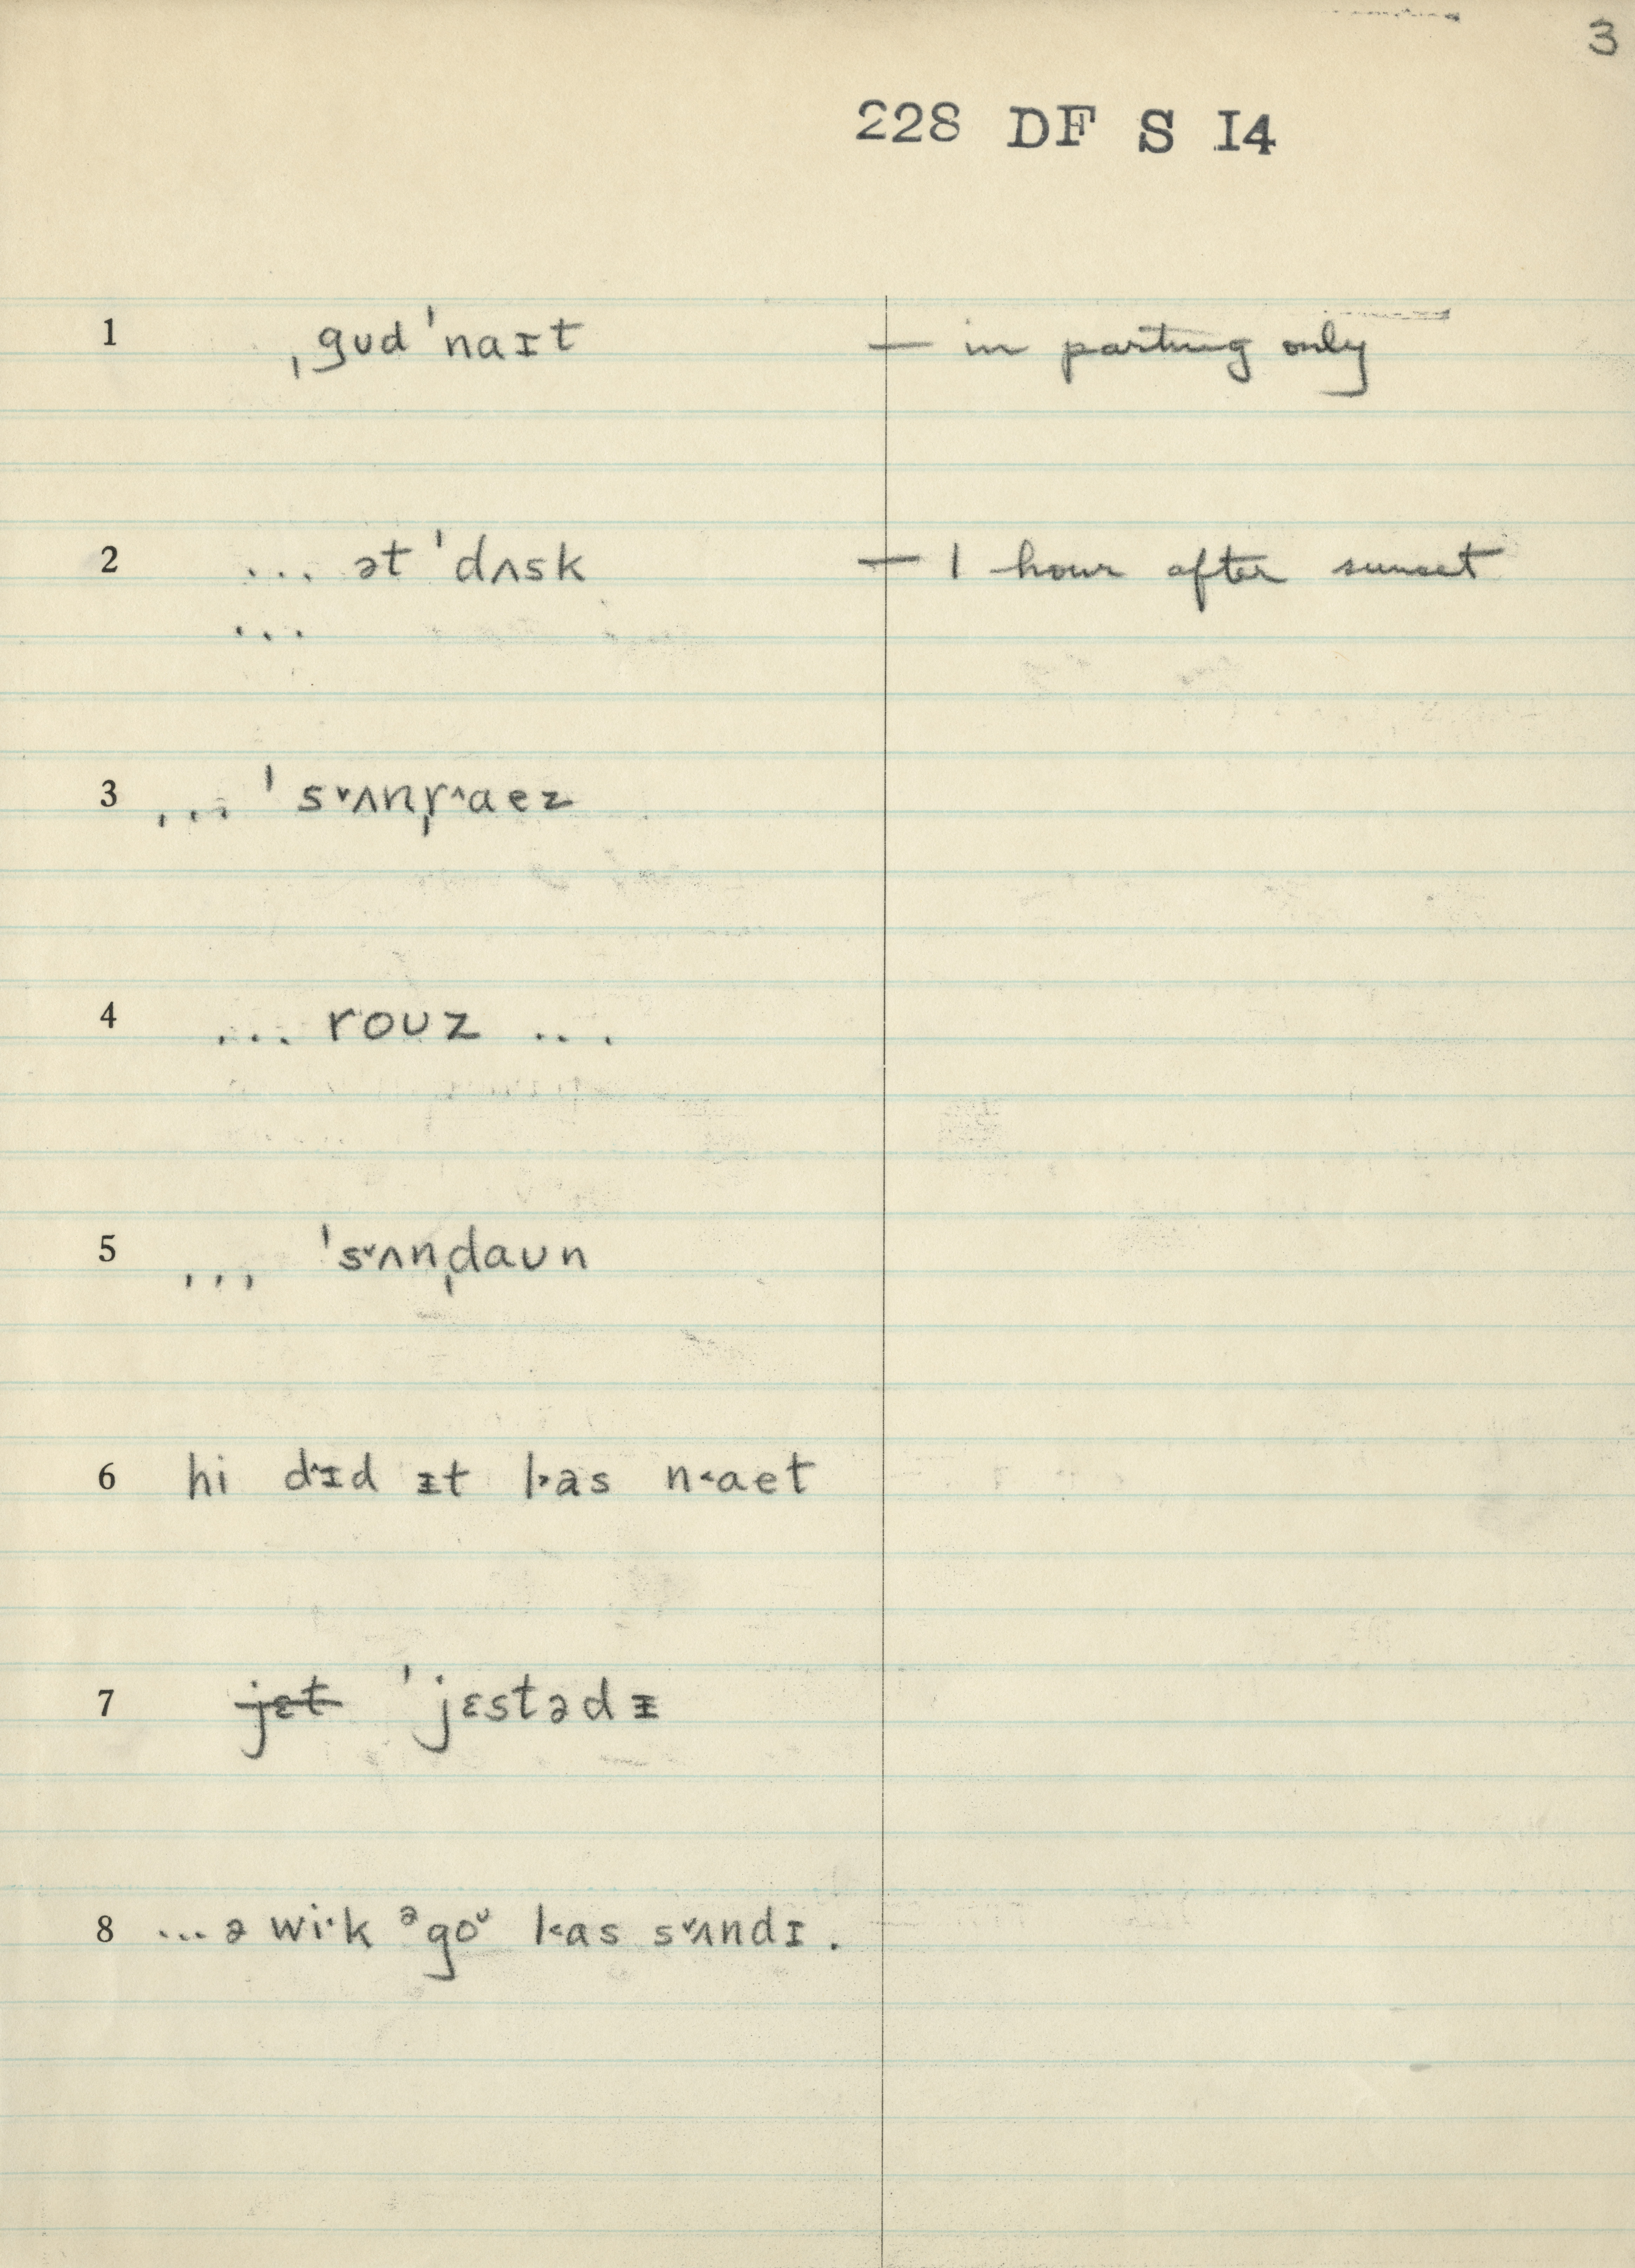 3
228 DF S I4
1 ˌgʊd ˈnaɪt — in parting only
2 ... ət ˈdʌsk — 1 hour after sunset
...
3 ... ˈs˅ʌnˌr^aez
4 ... roʊz ...
5 ... ˈs˅ʌnˌdaʊn
6 hi d^ɪd ᵻt l˃as n˂aet
7 ~~jɛt~~ ˈjɛstədᵻ
8 ...ə wi·k ᵊgoᶷ l˂as s˅ʌndɪ.